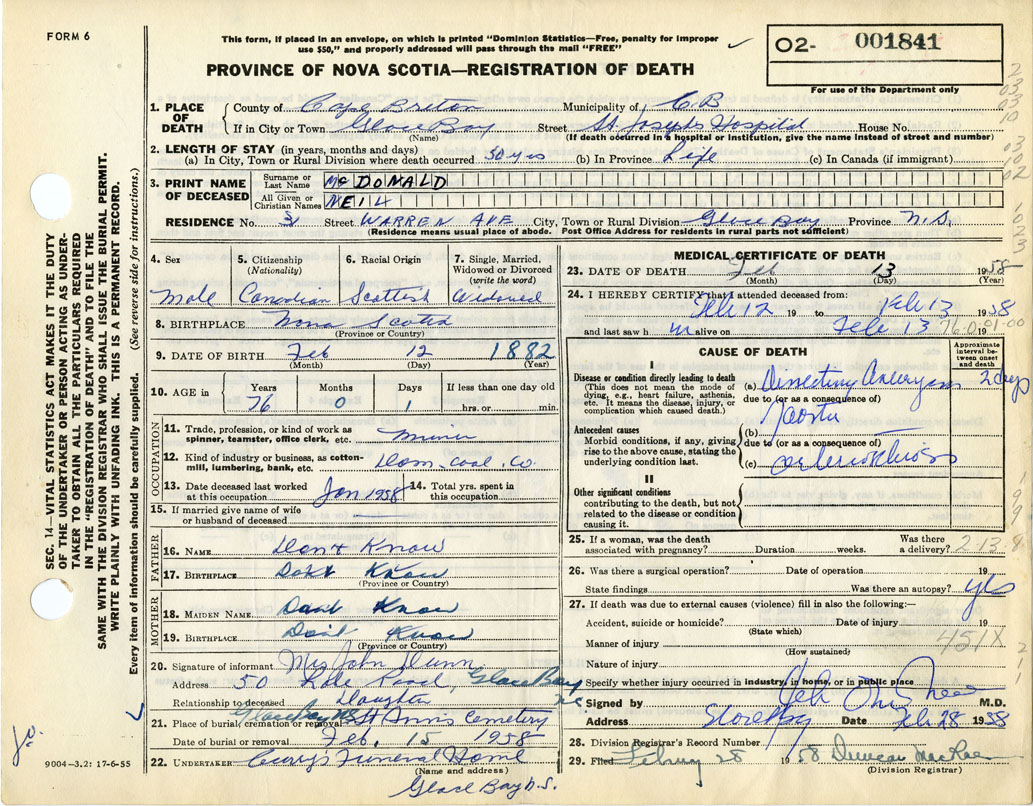 FORM 6
This form, if placed in an envelope, on which is printed "Dominion Statistics—Free, penalty for improper
use $50," and properly addressed will pass through the mail "FREE"
O2- 001841
For use of the Department only
PROVINCE OF NOVA SCOTIA—REGISTRATION OF DEATH
1. PLACE OF DEATH County of Cape Breton Municipality of C.B
If in City or Town Glace Bay Street St Josephs Hospital House No.
(Name) (If death occurred in a hospital or institution, give the name instead of street and number)
2. LENGTH OF STAY (in years, months and days)
(a) In City, Town or Rural Division where death occurred 50 yrs (b) In Province Life (c) In Canada (if immigrant)
3. PRINT NAME OF DECEASED Surname or Last Name McDONALD
All Given or Christian Names NEIL
RESIDENCE No. Street WARREN AVE City, Town or Rural Division Glace Bay Province N.S,
(Residence means usual place of abode. Post Office Address for residents in rural parts not sufficient)
4. Sex 5. Citizenship (Nationality) 6. Racial Origin 7. Single, Married, Widowed or Divorced (write the word)
Male Canadian Scottish Widowed
8. BIRTHPLACE Nova Scotia
(Province or Country)
9. DATE OF BIRTH Feb 12 1882
(Month) (Day) (Year)
10. AGE in Years Months Days If less than one day old
76 0 1 hrs. or min.
OCCUPATION
11. Trade, profession, or kind of work as
spinner, teamster, office clerk, etc. miner
12. Kind of industry or business, as cotton-
mill, lumbering, bank, etc. Dom. coal. Co.
13. Date deceased last worked at this occupation Jan 1958 14. Total yrs. spent in this occupation
15. If married give name of wife
or husband of deceased
FATHER
16. NAME Dont Know
17. BIRTHPLACE Dont Know
(Province or Country)
MOTHER
18. MAIDEN NAME Dont Know
19. BIRTHPLACE Don't Know
(Province or Country)
20. Signature of informant Mrs John Dunn
Address 50 Road, Glace Bay
Relationship to deceased Daughter NS
21. Place of burial, cremation or removal Glace Bay NS St Anns Cemetery
Date of burial or removal Feb. 15 1958
22. UNDERTAKER Curry's Funeral Home
(Name and address)
Glace Bay N.S.
MEDICAL CERTIFICATE OF DEATH
23. DATE OF DEATH Feb 13 1958
(Month) (Day) (Year)
24. I HEREBY CERTIFY that I attended deceased from:
Feb 12 19 to Feb 13 1958
and last saw h im alive on Feb 13 19 76.0.01.00
CAUSE OF DEATH
Approximate interval between onset and death
I
Disease or condition directly leading to death
(This does not mean the mode of dying, e.g., heart failure, asthenia, etc. It means the disease, injury, or complication which caused death.)
(a) Dissecting Aneurysm 2 days
due to (or as a consequence of)
Antecedent causes
Morbid conditions, if any, giving rise to the above cause, stating the underlying condition last.
(b) aorta
due to (or as a consequence of)
(c) arteriosclerosis
II
Other significant conditions
contributing to the death, but not related to the disease or condition causing it.
25. If a woman, was the death associated with pregnancy? Duration weeks. Was there a delivery? 2-13-8
26. Was there a surgical operation? Date of operation 19
State findings Was there an autopsy? yes
27. If death was due to external causes (violence) fill in also the following:—
Accident, suicide or homicide? Date of injury 19
(State which)
Manner of injury 451X
(How sustained)
Nature of injury
Specify whether injury occurred in industry, in home, or in public place
Signed by M.D.
Address Glace Bay Date Feb 28 1958
28. Division Registrar's Record Number
29. Filed February 28 1958 Duncan MacRae
(Division Registrar)
SEC. 14—VITAL STATISTICS ACT MAKES IT THE DUTY
OF THE UNDERTAKER OR PERSON ACTING AS UNDER-
TAKER TO OBTAIN ALL THE PARTICULARS REQUIRED
IN THE "REGISTRATION OF DEATH" AND TO FILE THE
SAME WITH THE DIVISION REGISTRAR WHO SHALL ISSUE THE BURIAL PERMIT.
WRITE PLAINLY WITH UNFADING INK. THIS IS A PERMANENT RECORD.
Every item of information should be carefully supplied. (See reverse side for instructions.)
9004—3.2: 17-6-55